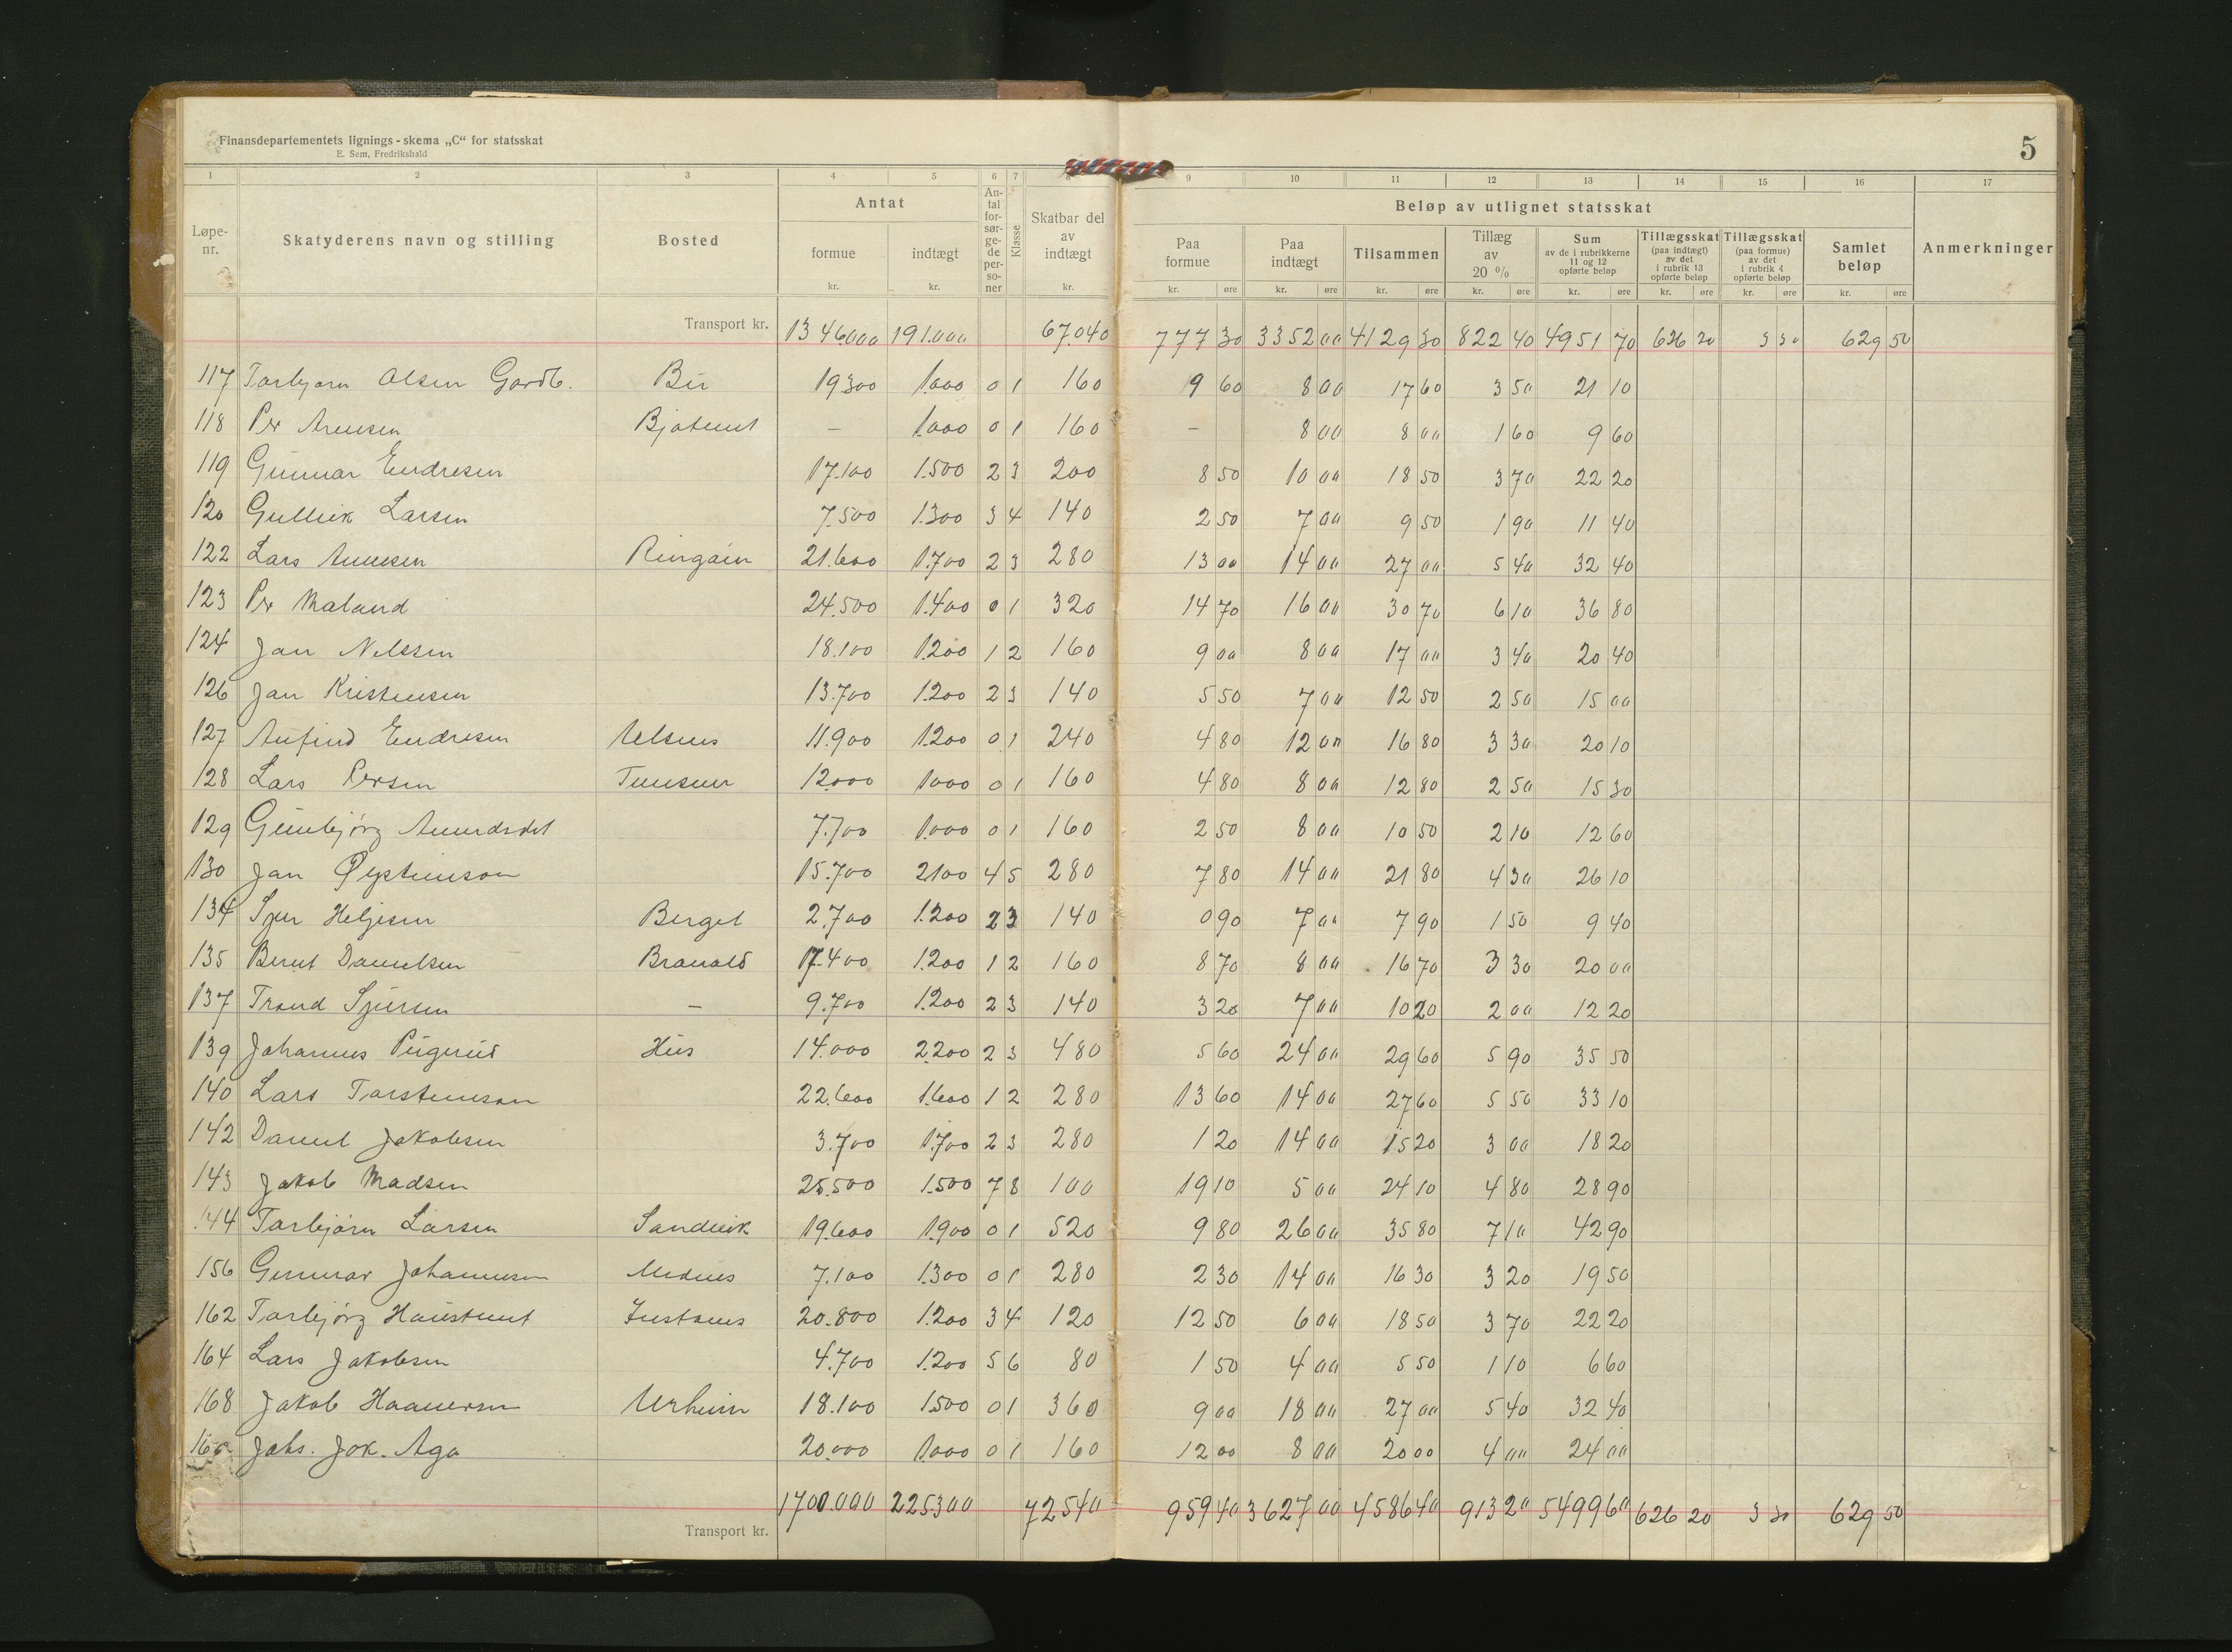 Finansdepartementets lignings-skema „C“ for statsskat
E. Sem, Fredrikshald
5
1 2 3 4 5 6 7 8 9 10 11 12 13 14 15 16 17
Løpe-nr. Skatyderens navn og stilling Bosted Antat formue kr. indtægt kr. Antal forsørgede personer Klasse Skatbar del av indtægt kr. Beløp av utlignet statsskat Paa formue kr. øre Paa indtægt kr. øre Tilsammen kr. øre Tillæg av 20 % kr. øre Sum av de i rubrikkerne 11 og 12 opførte beløp kr. øre Tillægsskat (paa indtægt) av det i rubrik 13 opførte beløp kr. øre Tillægsskat (paa formue) av det i rubrik 4 opførte beløp kr. øre Samlet beløp kr. øre Anmerkninger
Transport kr. 1346000 191.000 67.040 777 30 3352 00 4129 30 822 40 4951 70 626 20 3 30 629 50
117 Torbjørn Olsen Gardb. Bu 19300 1.000 0 1 160 9 60 8 00 17 60 3 50 21 10
118 Per Arnesen – 1.000 0 1 160 – 8 00 8 00 1 60 9 60
119 Gunnar Endresen 17.100 1.500 2 3 200 8 50 10 00 18 50 3 70 22 20
120 Gullik Larsen 7.500 1.300 3 4 140 2 50 7 00 9 50 1 90 11 40
122 Lars 21.600 1.700 2 3 280 13 00 14 00 27 00 5 40 32 40
123 Per Maland 24.500 1.400 0 1 320 14 70 16 00 30 70 6 10 36 80
124 Jon Nelssen 18.100 1.200 1 2 160 9 00 8 00 17 00 3 40 20 40
126 Jon Kristensen 13.700 1.200 2 3 140 5 50 7 00 12 50 2 50 15 00
127 Anfind Endresen Ulsnes 11.900 1.200 0 1 240 4 80 12 00 16 80 3 30 20 10
128 Lars Persen 12.000 1.000 0 1 160 4 80 8 00 12 80 2 50 15 30
129 Gunbjørg 7.700 1.000 0 1 160 2 50 8 00 10 50 2 10 12 60
130 Jon Øysteinson 15.700 2100 4 5 280 7 80 14 00 21 80 4 30 26 10
134 Sjur Heljesen Berget 2.700 1.200 2 3 140 0 90 7 00 7 90 1 50 9 40
135 Bernt Danielsen 17.400 1.200 1 2 160 8 70 8 00 16 70 3 30 20 00
137 Trond Sjursen – 9.700 1.200 2 3 140 3 20 7 00 10 20 2 00 12 20
139 Johannes Pugerud Hus 14.000 2.200 2 3 480 5 60 24 00 29 60 5 90 35 50
140 Lars Torsteinson 22.600 1.600 1 2 280 13 60 14 00 27 60 5 50 33 10
142 Daniel Jakobsen 3.700 1.700 2 3 280 1 20 14 00 15 20 3 00 18 20
143 Jakob Madsen 25.500 1.500 7 8 100 19 10 5 00 24 10 4 80 28 90
144 Torbjørn Larsen Sandvik 19.600 1.900 0 1 520 9 80 26 00 35 80 7 10 42 90
156 Gunnar Johannesen 7.100 1.300 0 1 280 2 30 14 00 16 30 3 20 19 50
162 Torbjørg 20.800 1.200 3 4 120 12 50 6 00 18 50 3 70 22 20
164 Lars Jakobsen 4.700 1.200 5 6 80 1 50 4 00 5 50 1 10 6 60
168 Jakob Urheim 18.100 1.500 0 1 360 9 00 18 00 27 00 5 40 32 40
Johs. Jok. Aga 20.000 1.000 0 1 160 12 00 8 00 20 00 4 00 24 00
Transport kr. 1700.000 225300 72540 959 40 3627 00 4586 40 913 20 5499 60 626 20 3 30 629 50